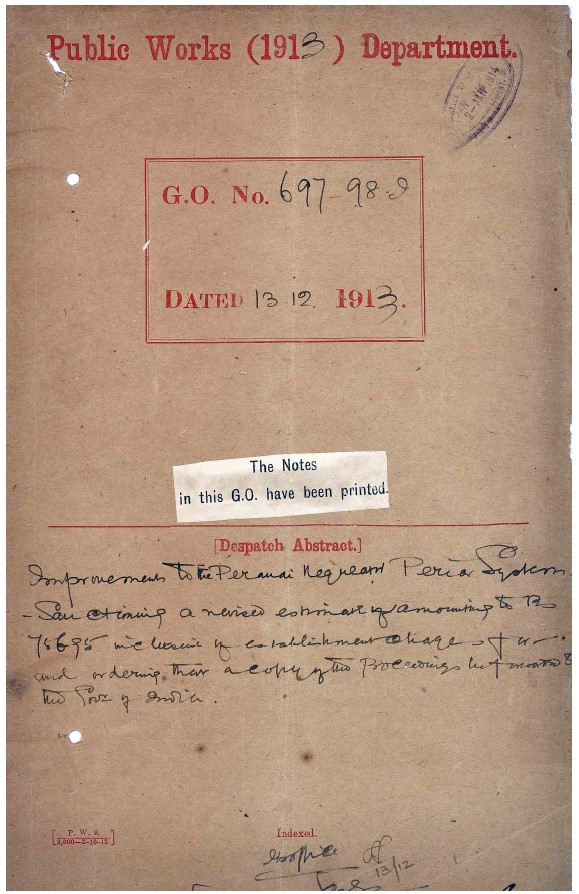 Public Works (1913) Department.
2-JAN 1914
G.O. No. 697-98
DATED 13.12. 1913.
The Notes
in this G.O. have been printed.
[Despatch Abstract.]
Improvements to the Peranai Regulator Periar System
- Sanctioning a revised estimate amounting to Rs
75695 inclusive of establishment charges
and ordering that a copy of the Proceedings be forwarded to
the Govt of India.
[P. W. 9.
5,000—2-10-12.]
Indexed.
13/12